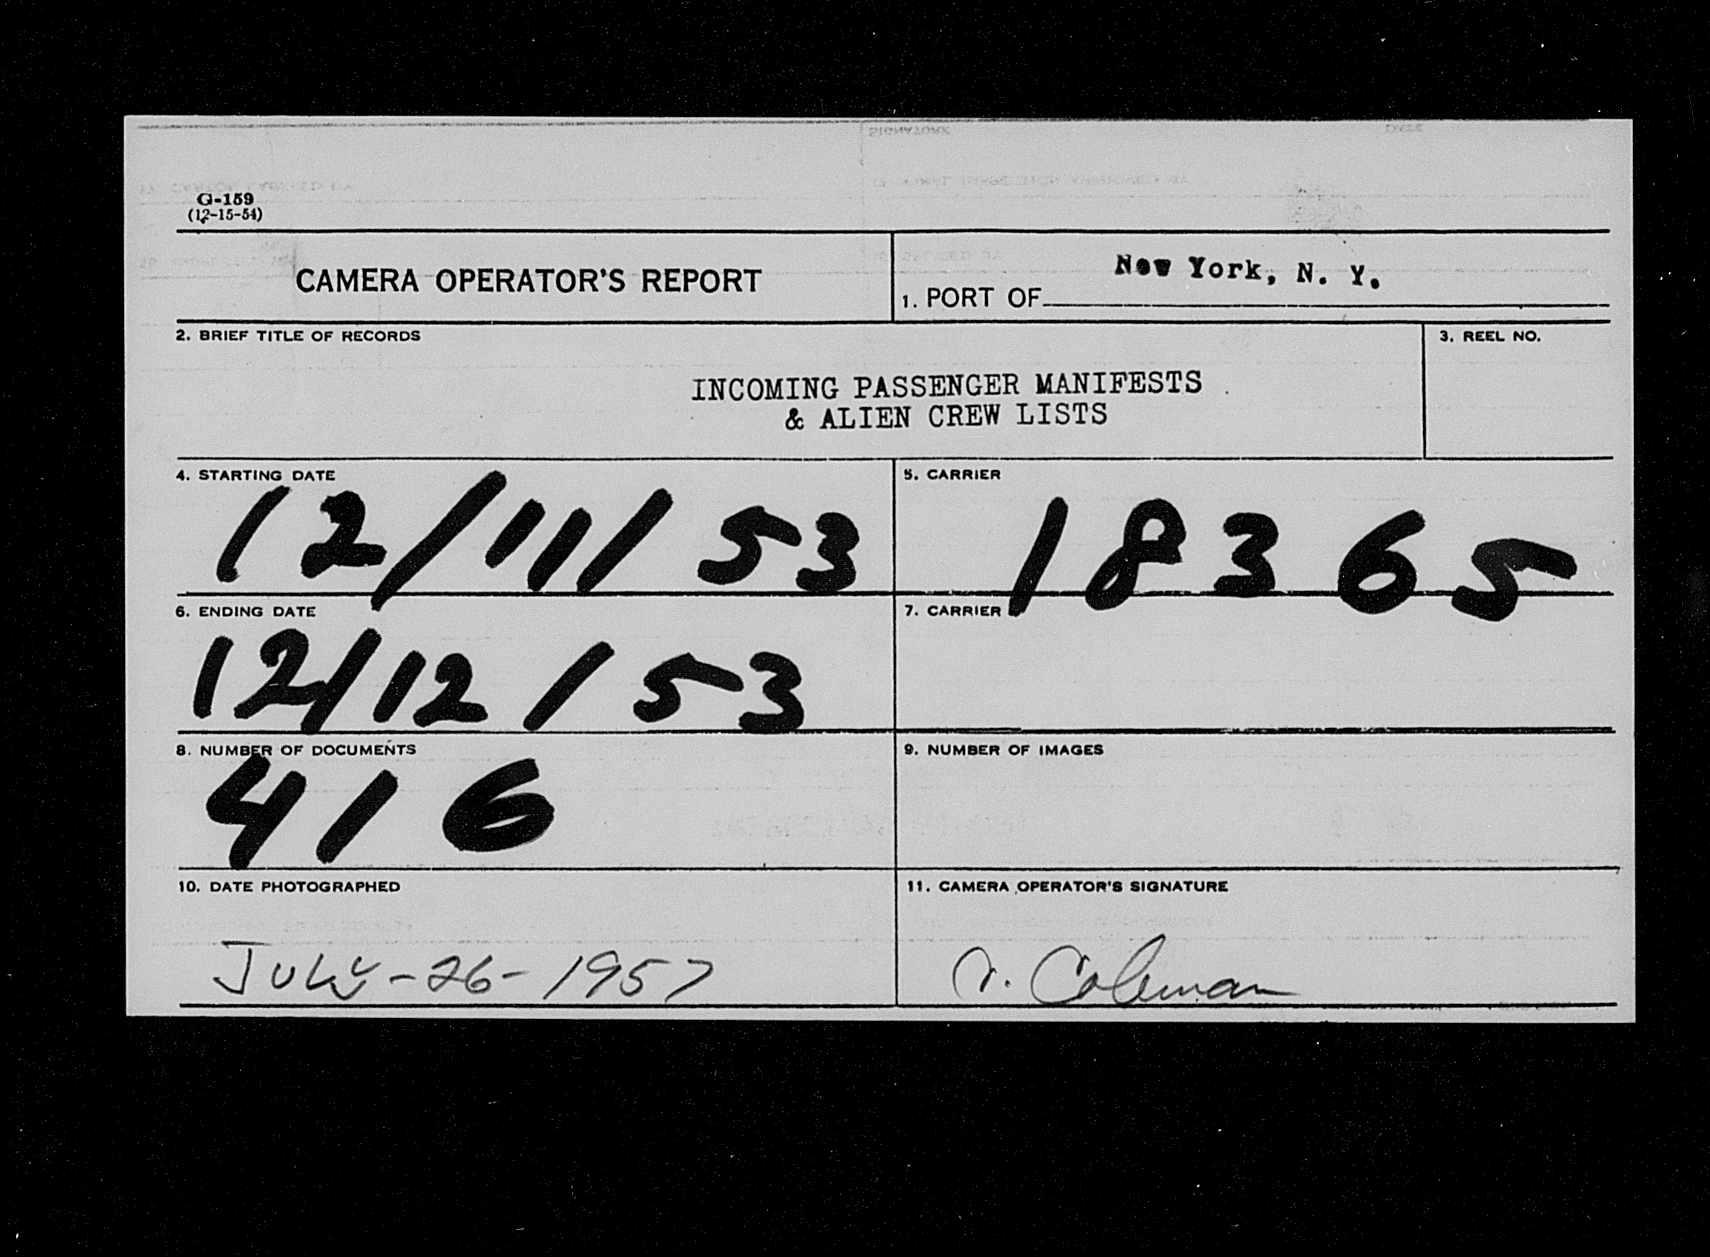 G-159
(12-15-54)
CAMERA OPERATOR'S REPORT
1. PORT OF New York, N. Y.
2. BRIEF TITLE OF RECORDS
INCOMING PASSENGER MANIFESTS
& ALIEN CREW LISTS
3. REEL NO.
4. STARTING DATE
12/11/53
5. CARRIER
18365
6. ENDING DATE
12/12/53
7. CARRIER
8. NUMBER OF DOCUMENTS
416
9. NUMBER OF IMAGES
10. DATE PHOTOGRAPHED
JULY-26-1957
11. CAMERA OPERATOR'S SIGNATURE
Coleman